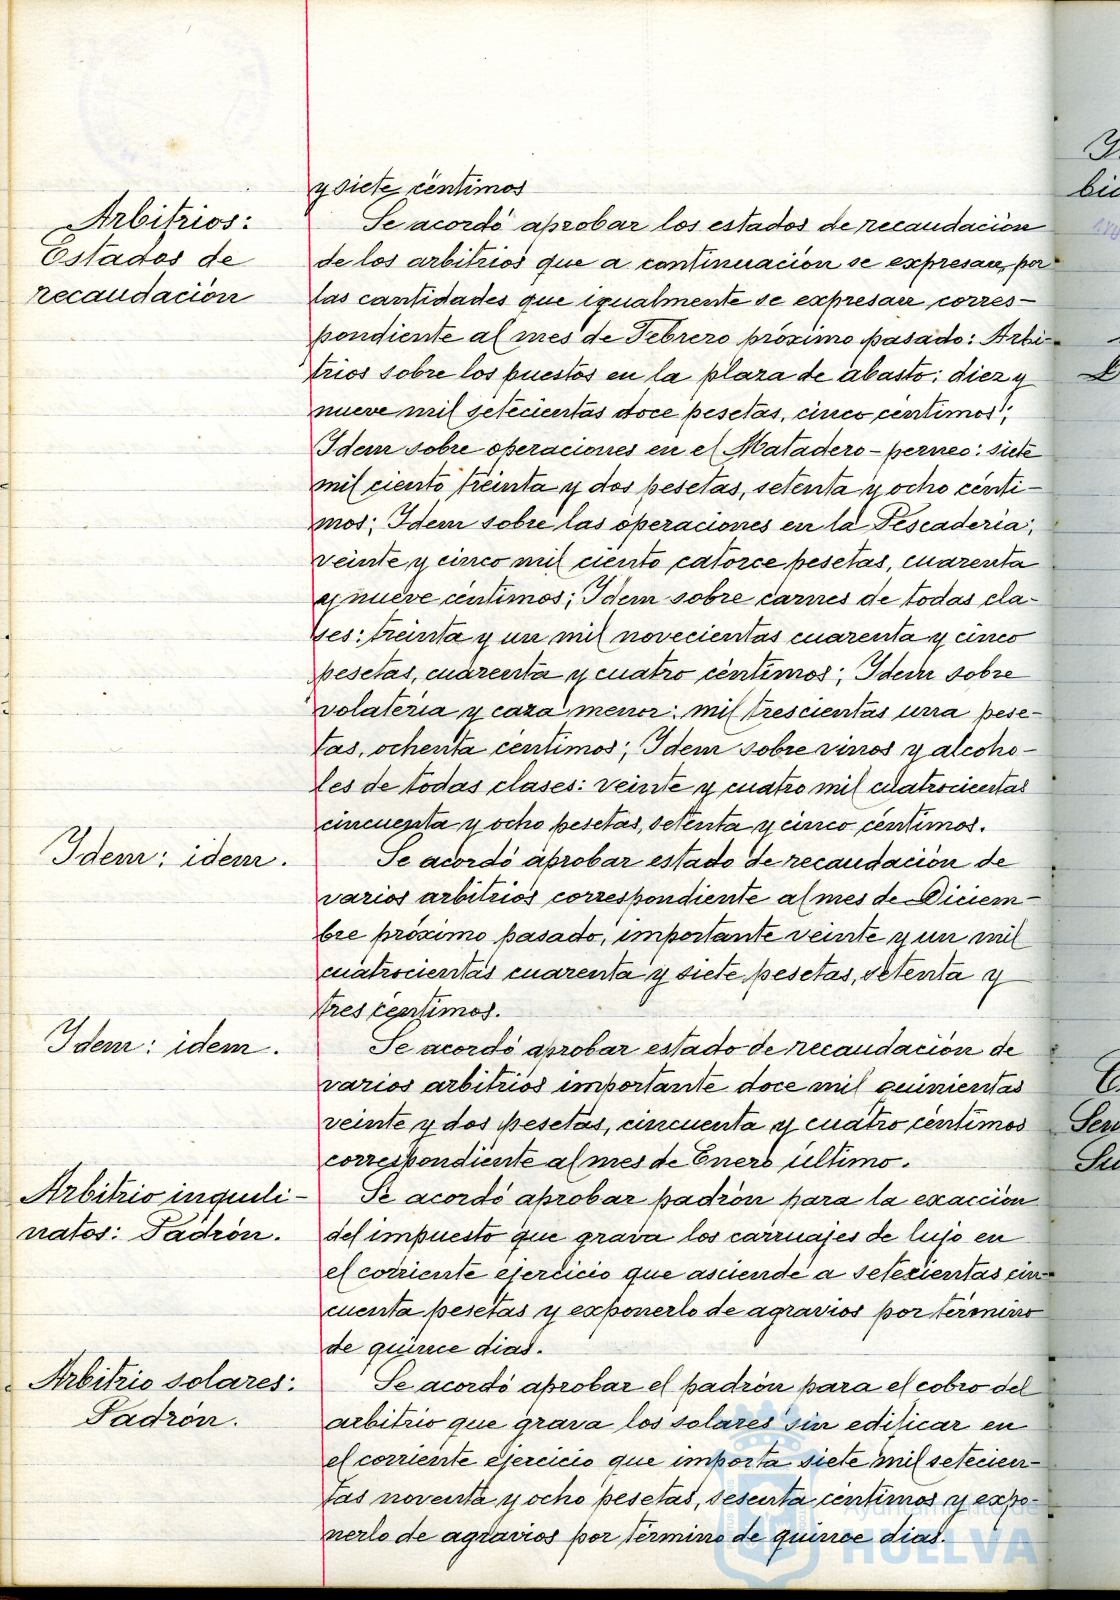 y siete céntimos
Arbitrios:
Estados de
recaudación
Se acordó aprobar los estados de recaudación
de los arbitrios que a continuación se expresan, por
las cantidades que igualmente se expresan corres-
pondiente al mes de Febrero próximo pasado: Arbi-
trios sobre los puestos en la plaza de abasto: diez y
nueve mil setecientas doce pesetas, cinco céntimos;
Idem sobre operaciones en el Matadero-perneo: siete
mil ciento treinta y dos pesetas, setenta y ocho cénti-
mos; Idem sobre las operaciones en la Pescaderia;
veinte y cinco mil ciento catorce pesetas, cuarenta
y nueve céntimos; Idem sobre carnes de todas cla-
ses: treinta y un mil novecientas cuarenta y cinco
pesetas, cuarenta y cuatro céntimos; Idem sobre
volateria y caza menor: mil trescientas una pese-
tas, ochenta céntimos; Idem sobre vinos y alcoho-
les de todas clases: veinte y cuatro mil cuatrocientas
cincuenta y ocho pesetas, setenta y cinco céntimos.
Idem: idem.
Se acordó aprobar estado de recaudación de
varios arbitrios correspondiente al mes de Diciem-
bre próximo pasado, importante veinte y un mil
cuatrocientas cuarenta y siete pesetas, setenta y
tres céntimos.
Idem: idem.
Se acordó aprobar estado de recaudación de
varios arbitrios importante doce mil quinientas
veinte y dos pesetas, cincuenta y cuatro céntimos
correspondiente al mes de Enero último.
Arbitrio inquili-
natos: Padrón.
Se acordó aprobar padrón para la exacción
del impuesto que grava los carruajes de lujo en
el corriente ejercicio que asciende a setecientas cin-
cuenta pesetas y exponerlo de agravios por término
de quince dias.
Arbitrio solares:
Padrón.
Se acordó aprobar el padrón para el cobro del
arbitrio que grava los solares sin edificar en
el corriente ejercicio que importa siete mil setecien-
tas noventa y ocho pesetas, sesenta céntimos y expo-
nerlo de agravios por término de quince dias.
Ayuntamiento de
HUELVA